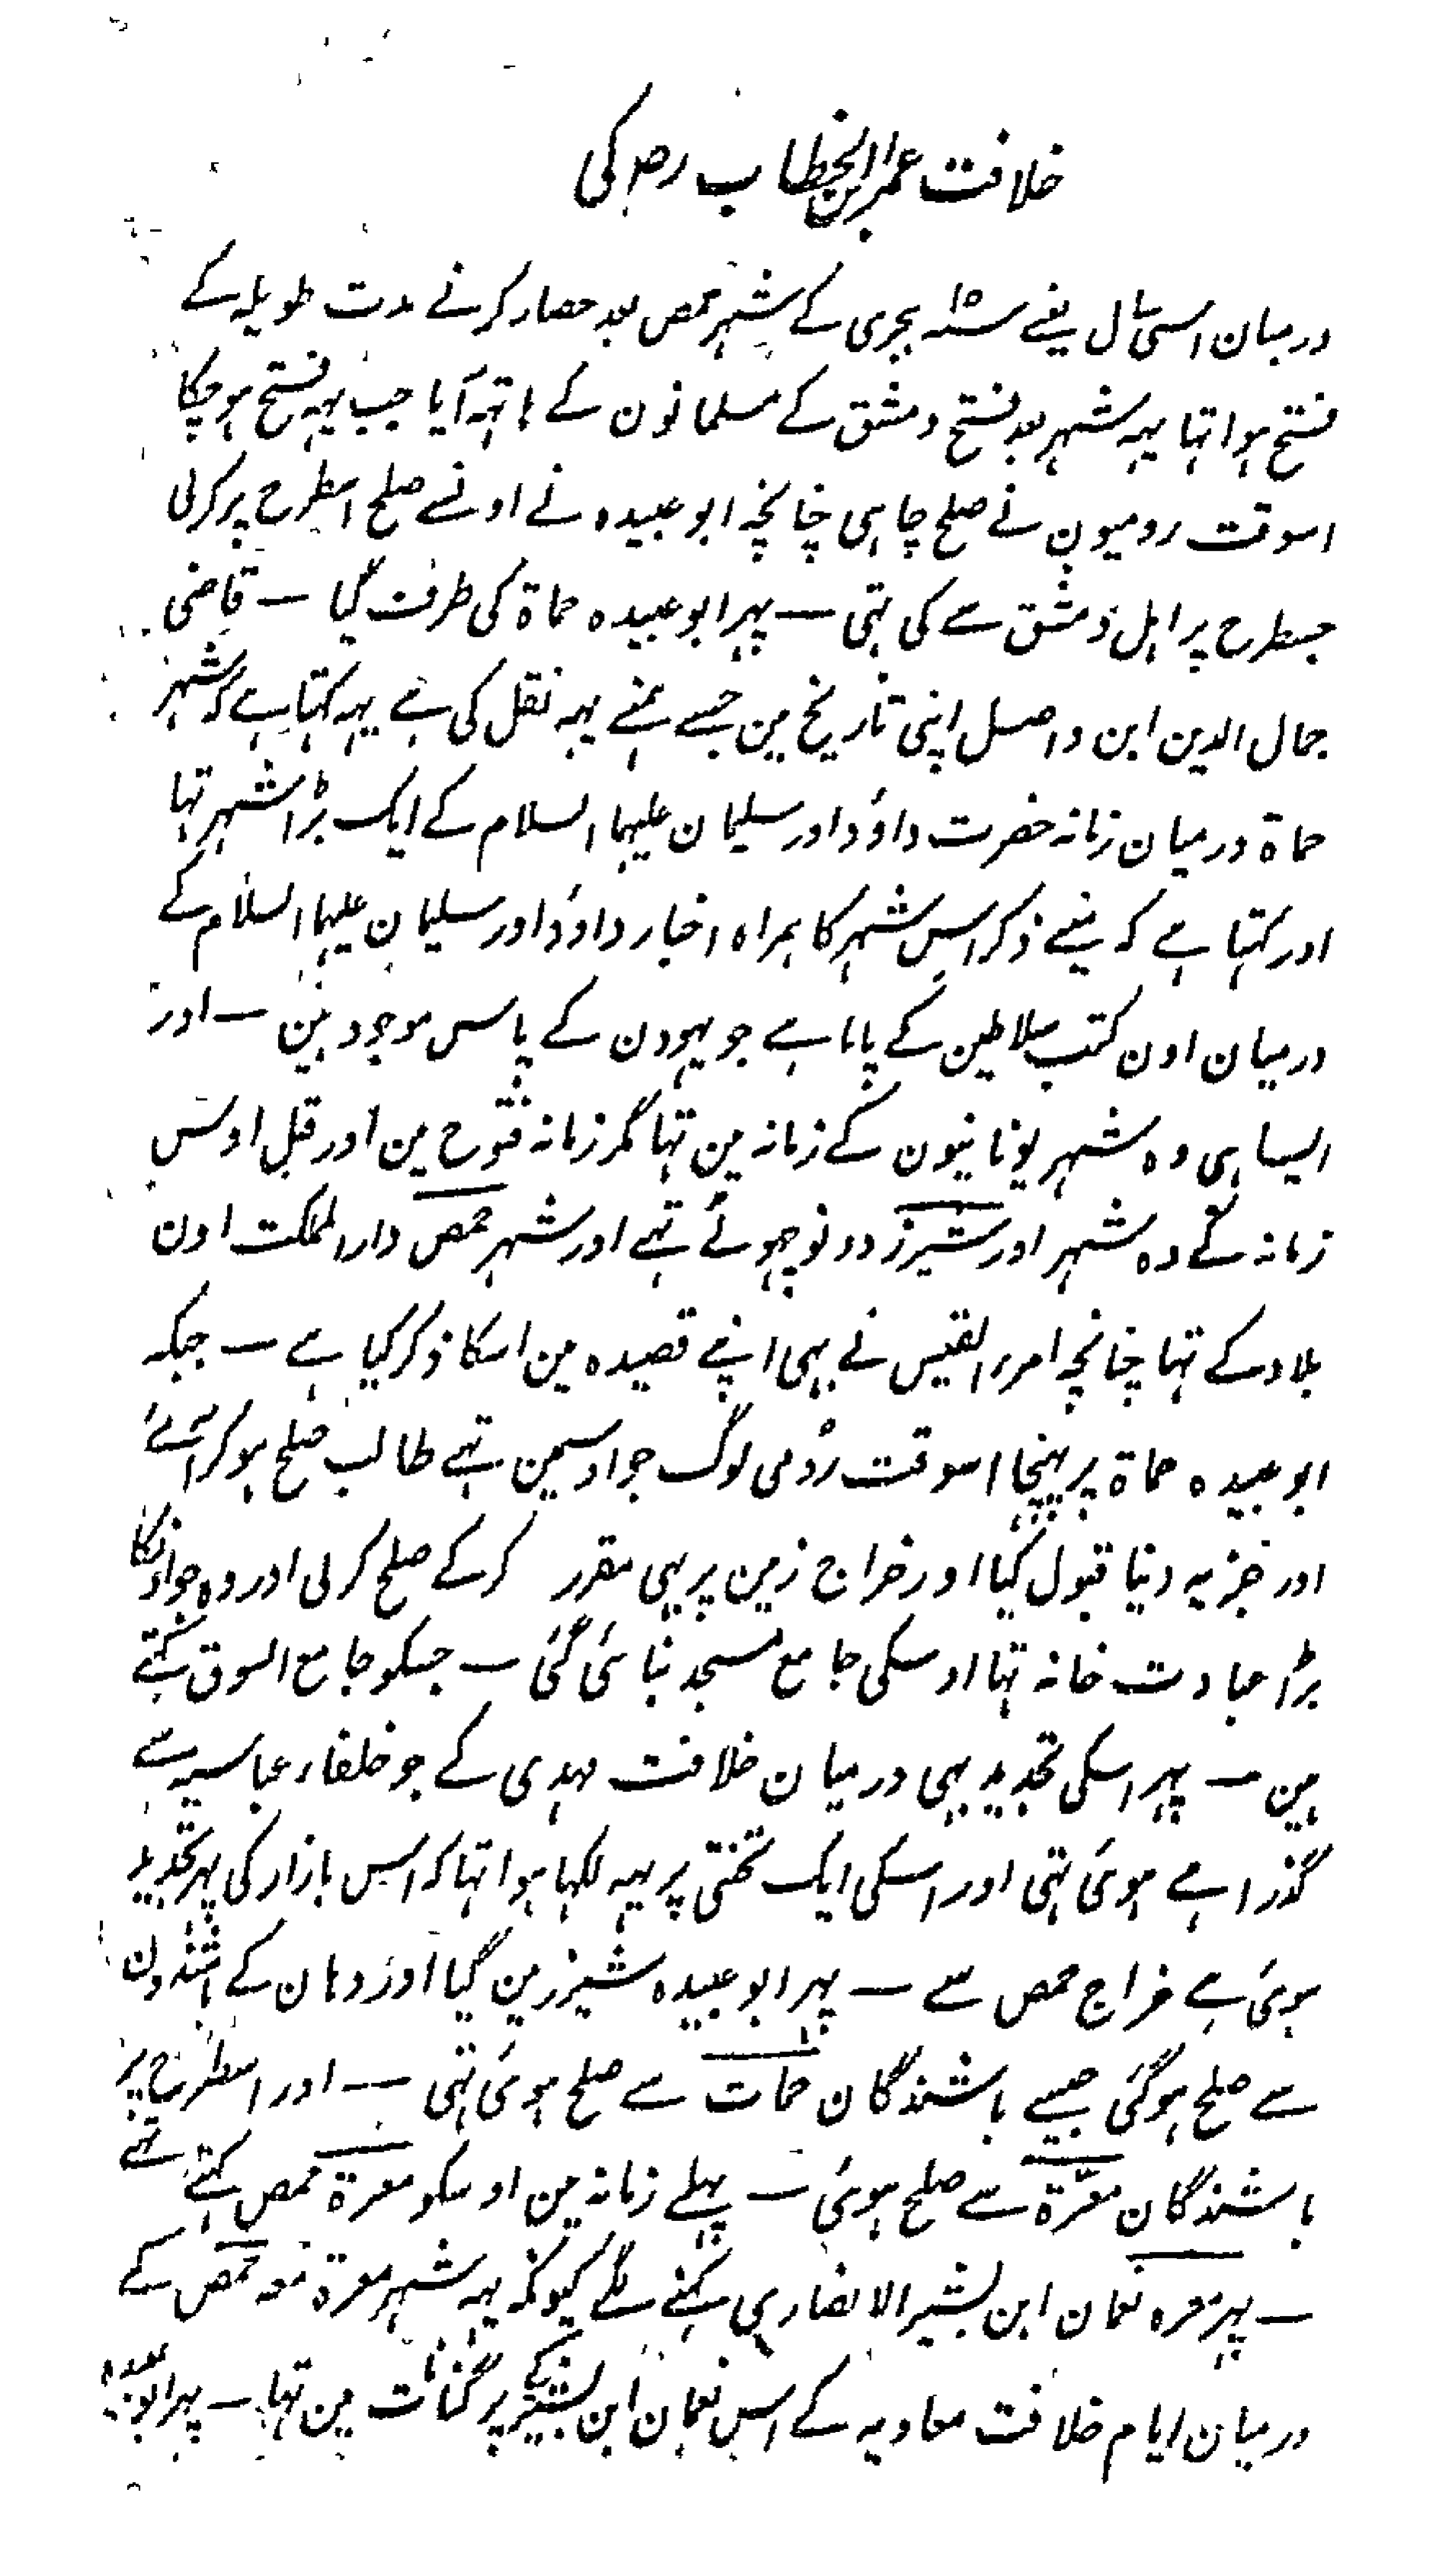 خلافت عمر ابن الخطاب رض کی
درمیان اسی سال یعنے سنہ ۱۵ ہجری کے شہر حمص بعد حصار کرنے مدت طویلہ کے
فتح ہوا تہا یہہ شہر بعد فتح دمشق کے مسلمانون کے ہاتہہ آیا جب یہہ فتح ہوچکا
اسوقت رومیون نے صلح چاہی چنانچہ ابو عبیدہ نے اونسے صلح اسطرح پر کرلی
جسطرح پر اہل دمشق سے کی تہی — پہر ابو عبیدہ حماۃ کی طرف گیا — قاضی
جمال الدین ابن واصل اپنی تاریخ مین جسے ہمنے یہہ نقل کی ہے یہہ کہتا ہے کہ شہر
حماۃ درمیان زمانہ حضرت داؤد اور سلیمان علیہما السلام کے ایک بڑا شہر تہا
اور کہتا ہے کہ مینے ذکر اس شہر کا ہمراہ اخبار داؤد اور سلیمان علیہما السلام کے
درمیان اون کتب سلاطین کے پایا ہے جو یہودن کے پاس موجود ہین — اور
ایسا ہی وہ شہر یونانیون کے زمانہ مین تہا مگر زمانہ فتوح مین اور قبل اوس
زمانہ کے وہ شہر اور شیزر دونو چہوٹے تہے اور شہر حمص دار الملکت اون
بلاد کے تہا چنانچہ امرء القیس نے بہی اپنے قصیدہ مین اسکا ذکر کیا ہے — جبکہ
ابو عبیدہ حماۃ پر پہنچا اسوقت رومی لوگ جو اوسمین تہے طالب صلح ہوکر آئے
اور جزیہ دینا قبول کیا اور خراج زمین پر بہی مقرر کرکے صلح کرلی اور وہ جو اونکا
بڑا عبادت خانہ تہا اوسکی جامع مسجد بنائی گئی — جسکو جامع السوق کہتے
ہین — پہر اسکی تجدید بہی درمیان خلافت مہدی کے جو خلفاء عباسیہ سے
گذرا ہے ہوئی تہی اور اسکی ایک تختی پر یہہ لکہا ہوا تہا کہ اس بازار کی پہر تجدید
ہوئی ہے خراج حمص سے — پہر ابو عبیدہ شیزر مین گیا اور وہان کے باشندون
سے صلح ہوگئی جیسے باشندگان حمات سے صلح ہوئی تہی — اور اسطرح پر
باشندگان معرّۃ سے صلح ہوئی — پہلے زمانہ مین اوسکو معرۃ حمص کہتے تہے
— پہر معرہ نعمان ابن بشیر الانصاری کہنے لگے کیونکہ یہہ شہر معرۃ معہ حمص کے
درمیان ایام خلافت معاویہ کے اس نعمان ابن بشیر کے پرگنات مین تہا — پہر ابو عبیدہ